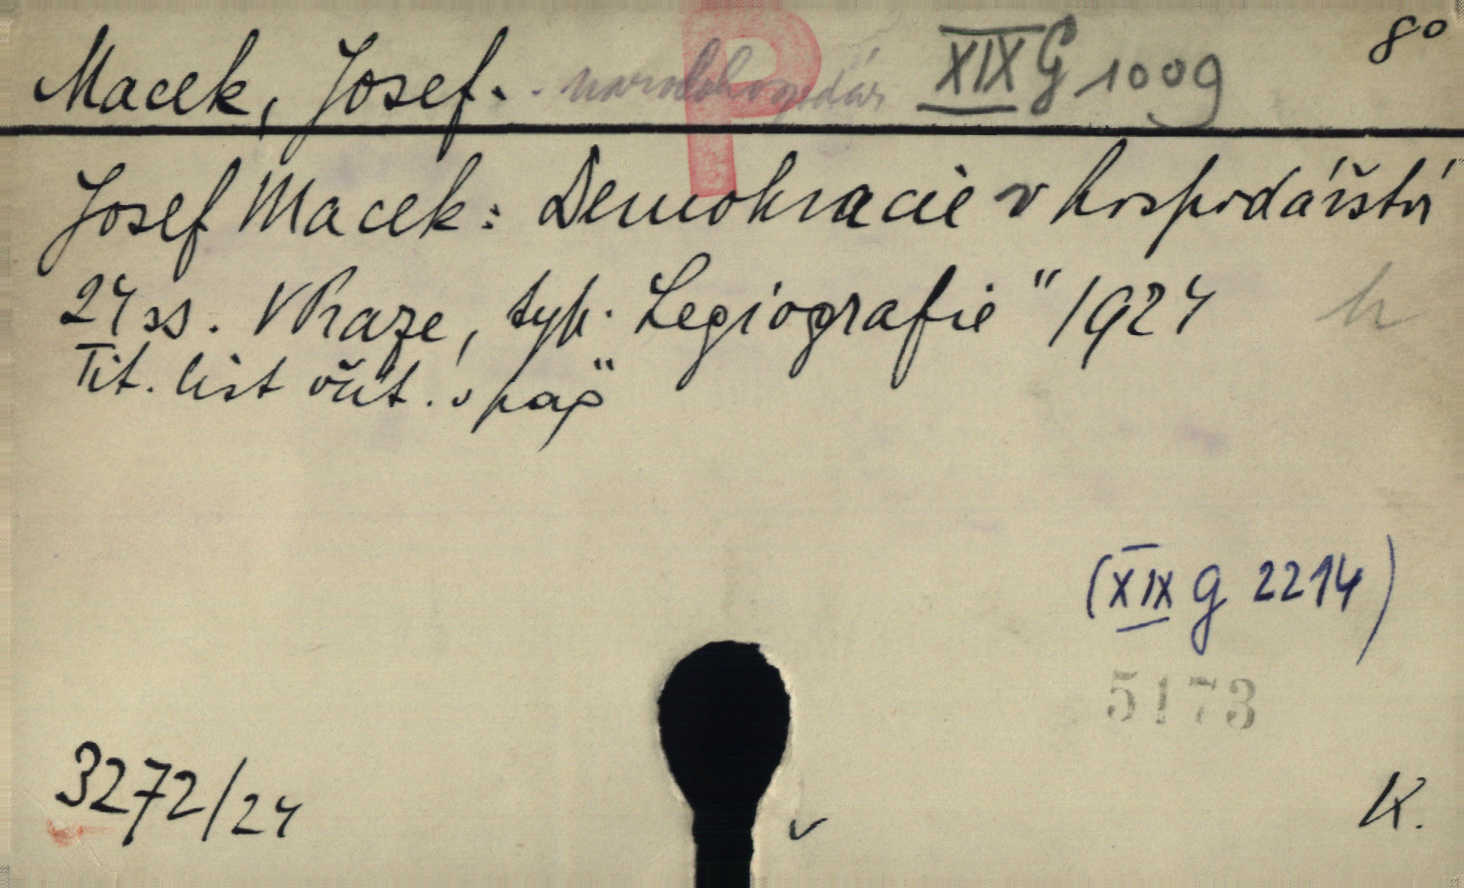 Macek, Josef. - národohospodář XIX G 1009 8°
P
Josef Macek: Demokracie v hospodářství
24 ss. V Praze, typ. Legiografie" 1924 h
Tit. list včít. v pag"
(XIX G 2214)
5173
3272/24
v
K.